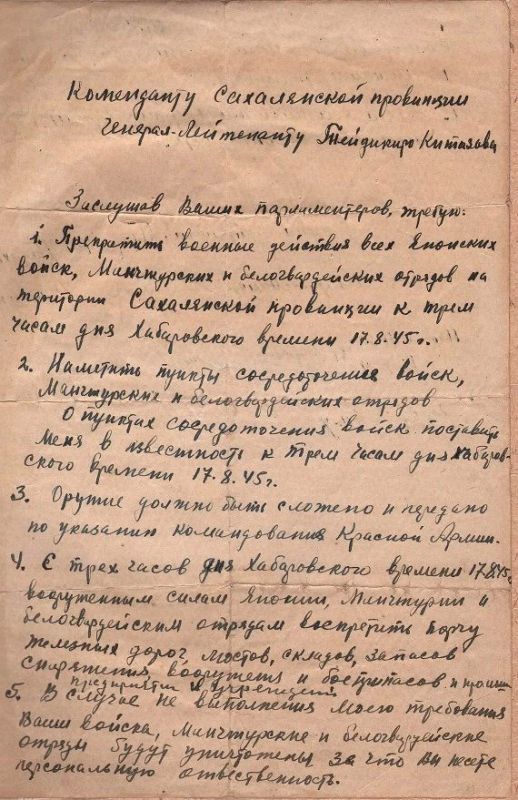 Коменданту Сахалянской провинции
Генерал-Лейтенанту Тейдикиро Китазава
Заслушав Ваших парламентеров, требую:
1. Прекратить военные действия всех Японских
войск, Манчжурских и белогвардейских отрядов на
територии Сахалянской провинции к трем
часам дня Хабаровского времени 17.8.45г.
2. Наметить пункты сосредоточения войск,
Манчжурских и белогвардейских отрядов
О пунктах сосредоточения войск поставить
меня в известность к трем часам дня хабаров-
ского времени 17.8.45г.
3. Оружие должно быть сложено и передано
по указанию командования Красной Армии.
4. С трех часов дня Хабаровского времени 17.8.45г.
вооруженным силам Японии, Манчжурии и
белогвардейским отрядам воспретить порчу
железных дорог, мостов, складов, запасов
снаряжения, вооружения и боеприпасов и
предприятий и учреждений
5. В случае не выполнения моего требования
Ваши войска, Манчжурские и белогвардейские
отряды будут уничтожены за что Вы несете
персональную ответственность.